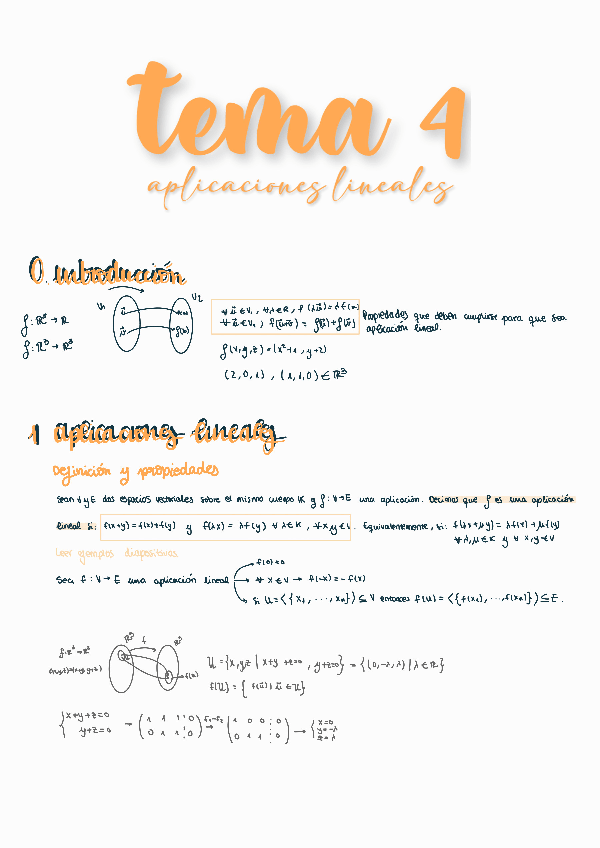 tema 4
aplicaciones lineales
0. introducción
V₁ V₂
f: R³ → R
f: R³ → R³
∀ ū ∈ V₁, ∀ λ ∈ R, f(λū) = λ f(ū)
Propiedades que deben cumplirse para que sea
aplicación lineal.
f(x,y,z) = (x²+1, y+2)
(2,0,1), (1,1,0) ∈ R³
1 aplicaciones lineales
Definición y propiedades
Sean V y E dos espacios vectoriales sobre el mismo cuerpo K y f: V→E una aplicación. Decimos que f es una aplicación
lineal si: f(x+y) = f(x)+f(y) y f(λx) = λf(x) ∀ λ ∈ K, ∀ x,y ∈ V. Equivalentemente, si: f(λx+μy) = λf(x)+μf(y)
∀ λ,μ ∈ K y ∀ x,y ∈ V
Leer ejemplos diapositivas
f(0) = 0
Sea f: V → E una aplicación lineal ∀ x ∈ V → f(-x) = -f(x)
Si U = <{x₁, ..., xₙ}> ⊆ V entonces f(U) = <{f(x₁), ..., f(xₙ)}> ⊆ E.
U = {x,y,z | x+y+z=0, y+z=0} = {(0,-λ,λ) | λ ∈ R}
f(U) = { f(ū) | ū ∈ U }
{ x+y+z=0 → ( 1 1 1 | 0 ) F₁-F₂ → ( 1 0 0 | 0 ) → { x=0
y+z=0 ( 0 1 1 | 0 ) ( 0 1 1 | 0 ) y=-λ
z=λ